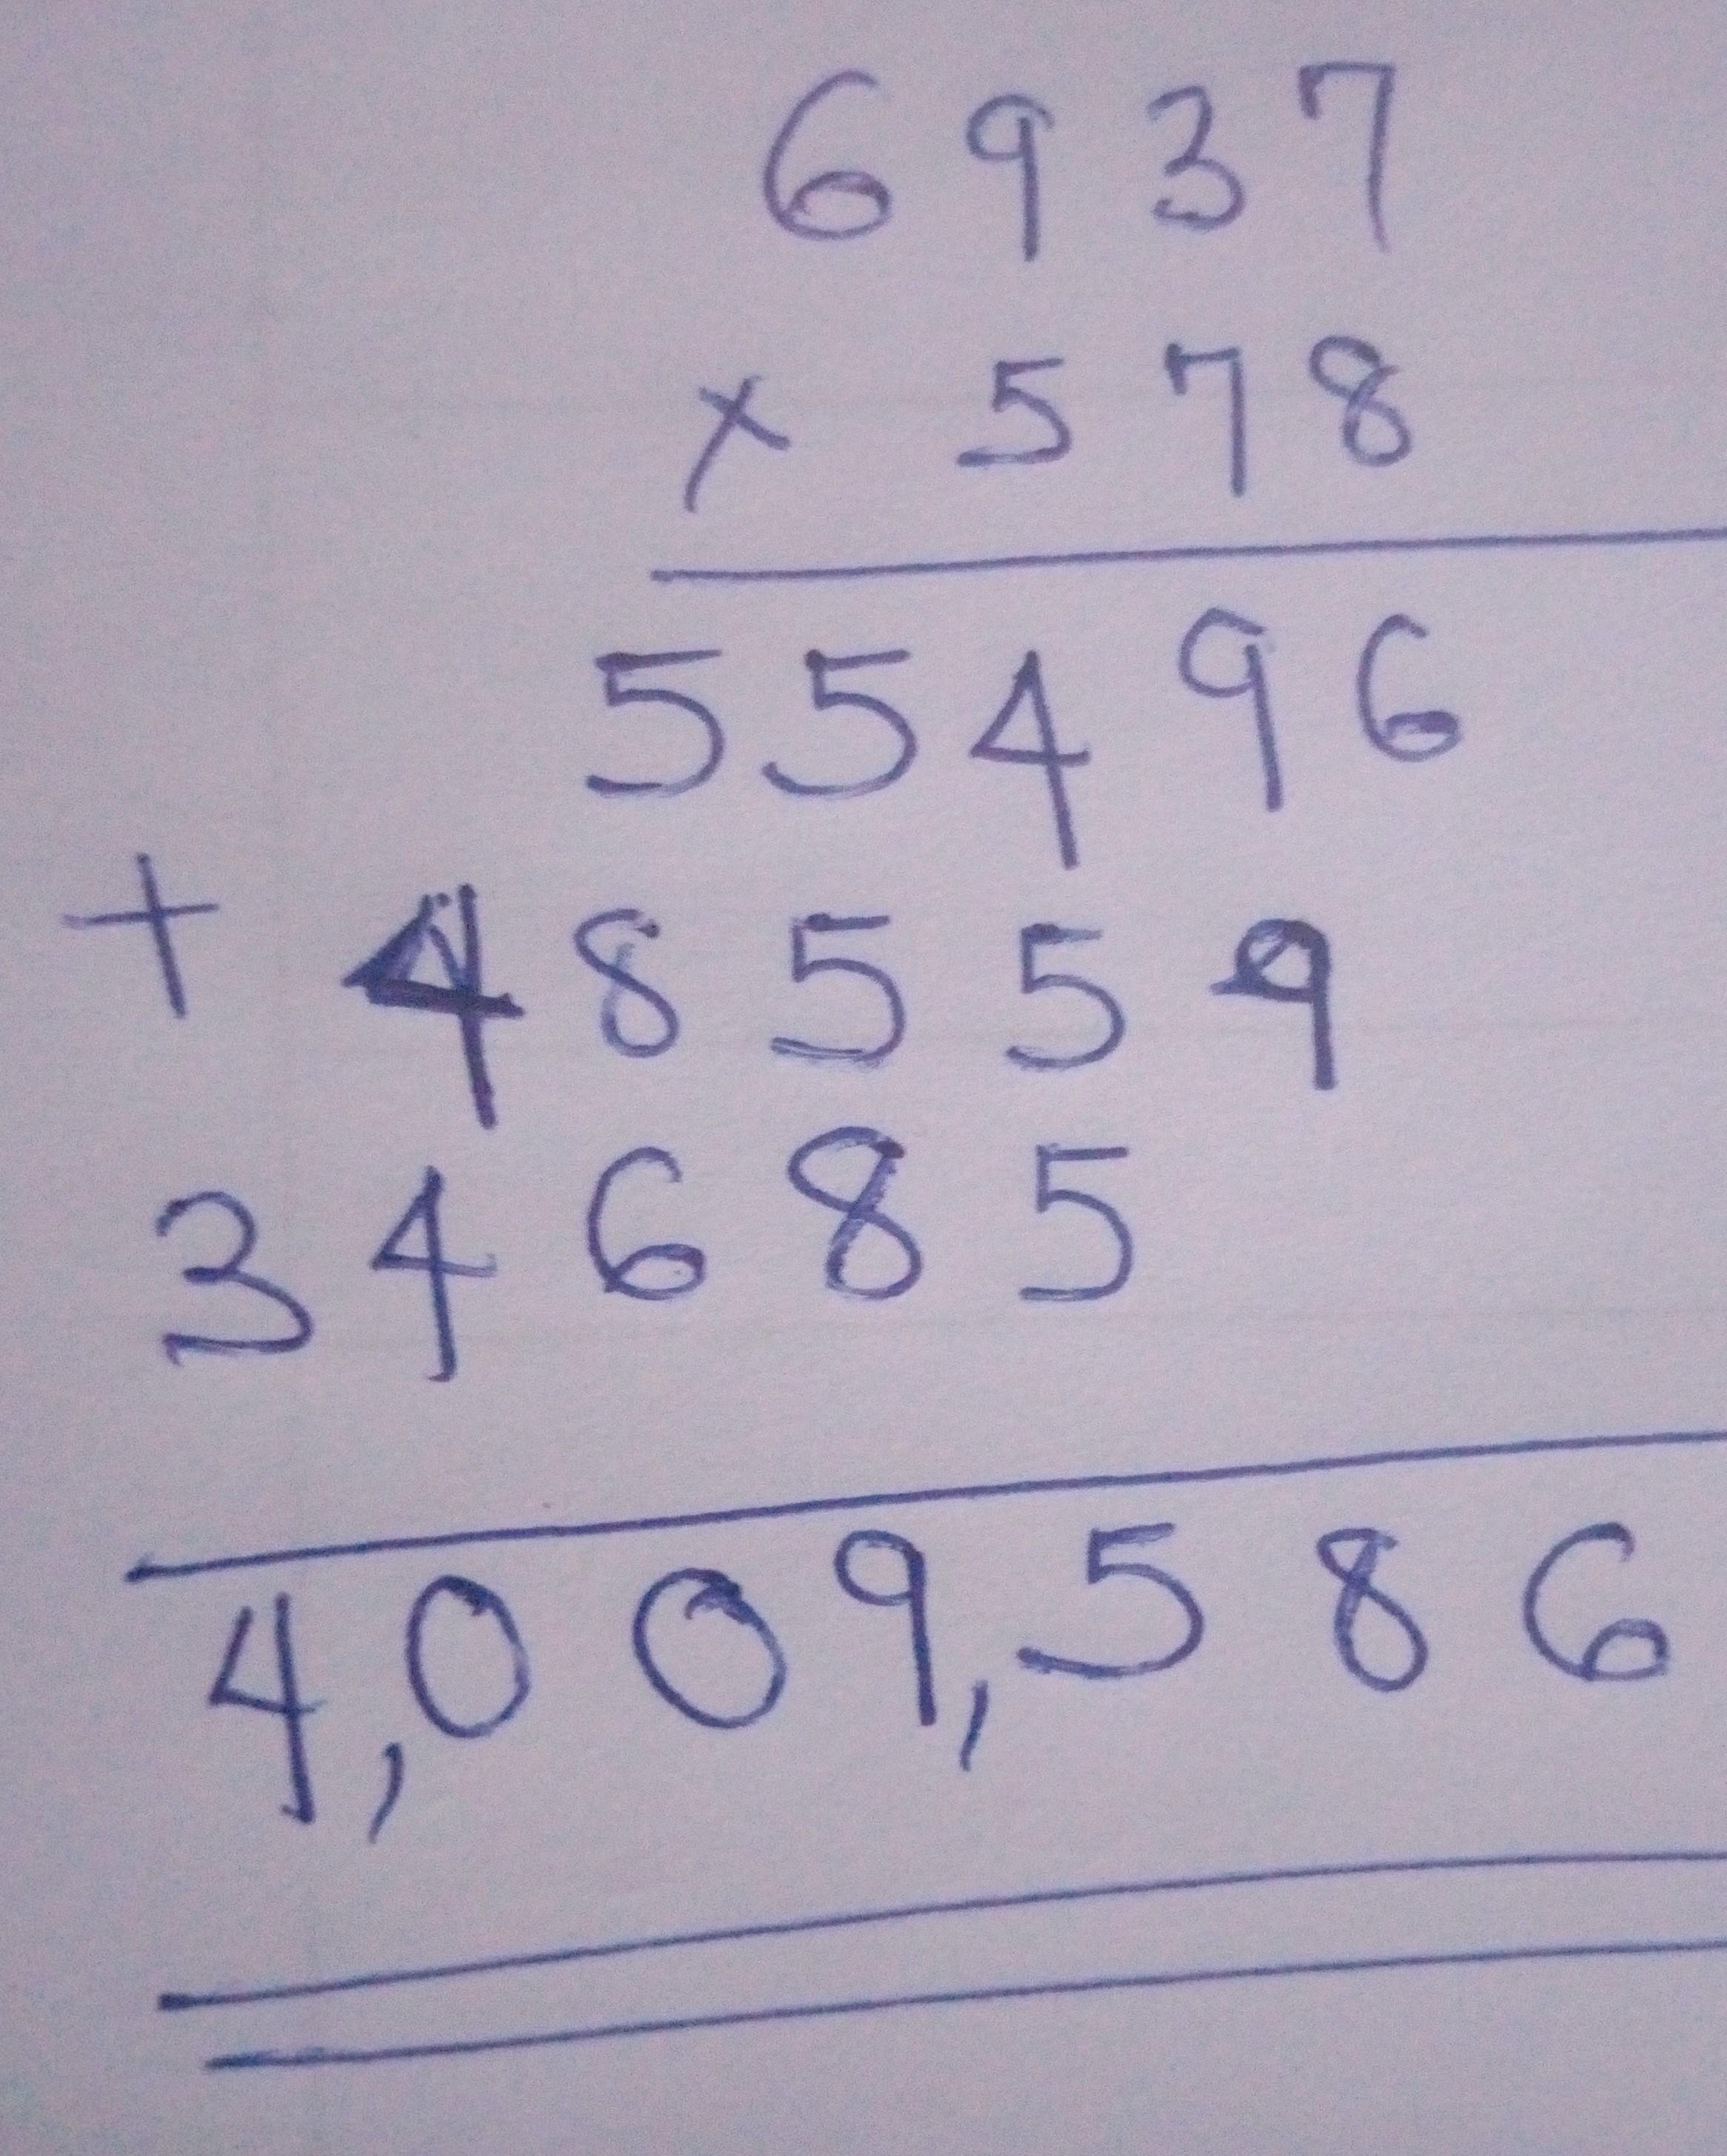 6937
× 578
55496
+ 48559
34685
4,009,586